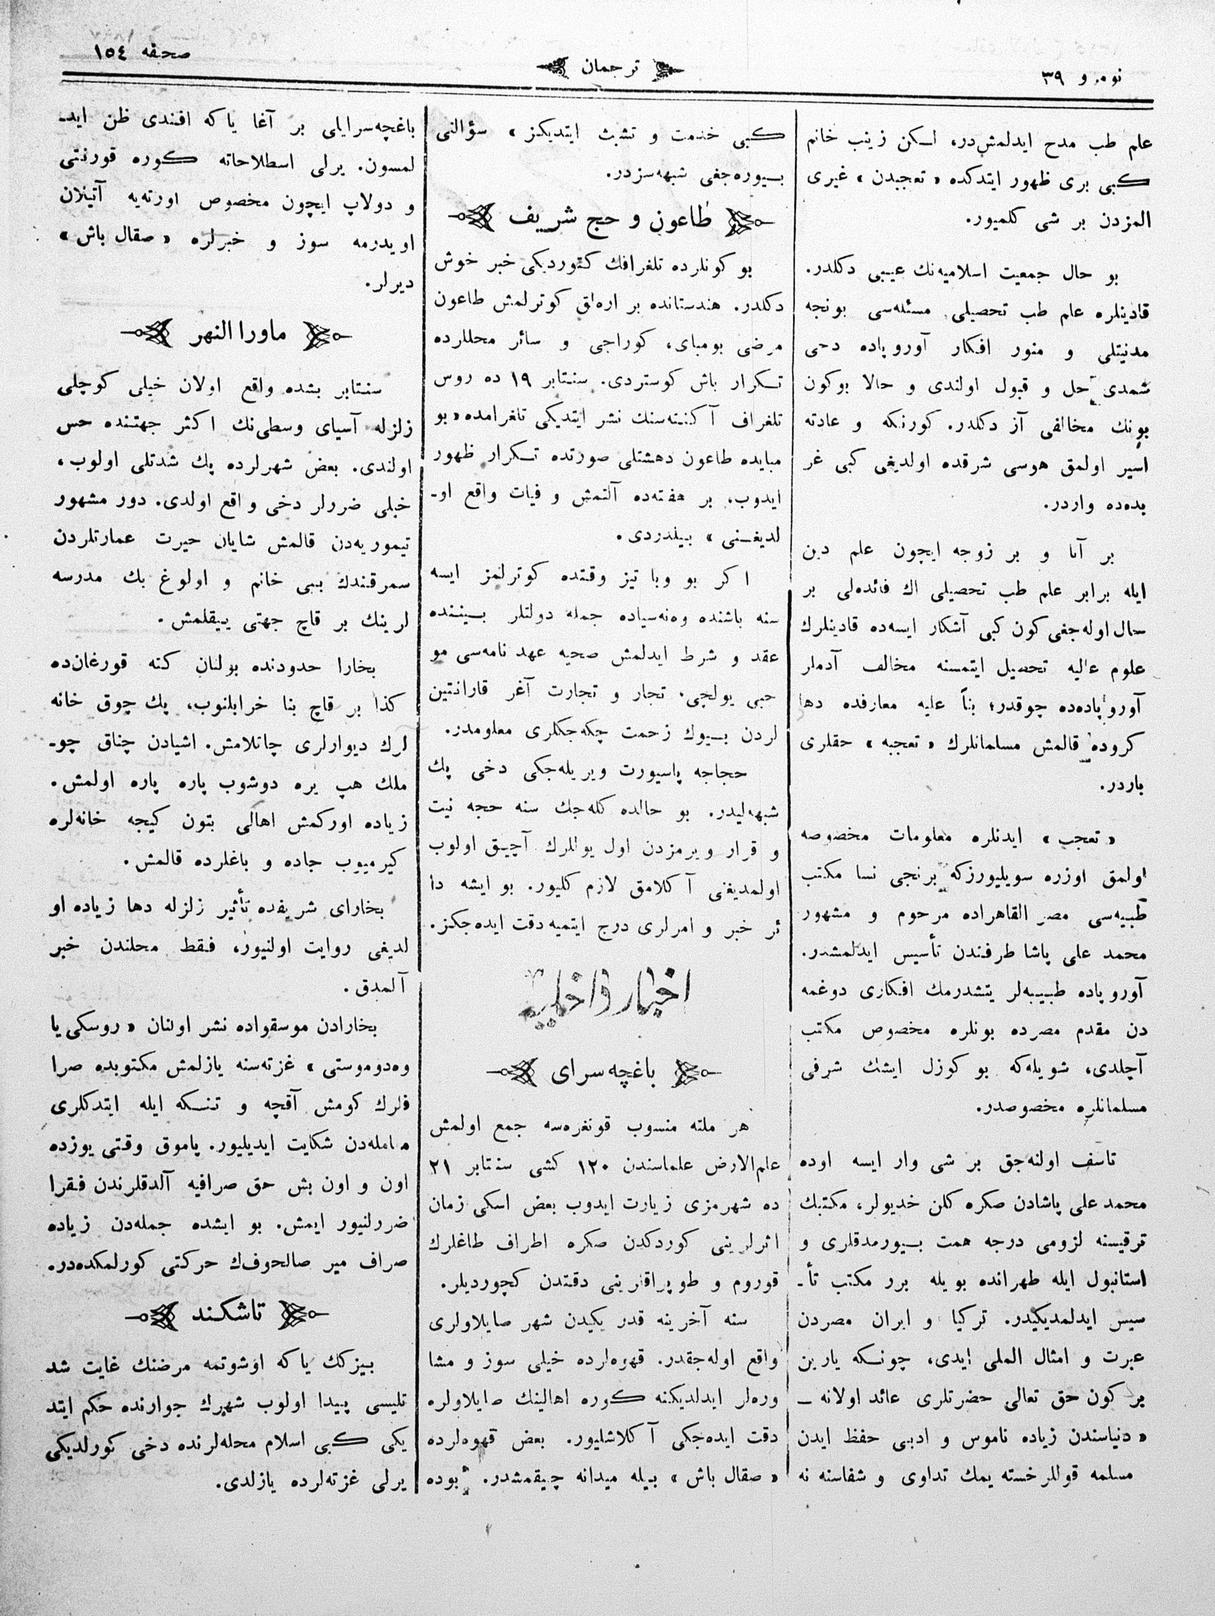 نومرو ٣٩
ترجمان
صحفه ١٥٤
علم طب مدح ايدلمش‌در، لسكن زينب خانم
كبى برى ظهور ايتدكده « تعجبدن » غيرى
المزدن بر شى كلميور.
بو حال جمعيت اسلاميه‌نك عيبى دكلدر.
قادينلره علم طب تحصيلى مسئله‌سى بونجه
مدنيتلى و منور افكار آوروپاده دخى
شمدى حل و قبول اولندى و حالا بوكون
بونك مخالفى آز دكلدر. كورنكه و عادته
اسير اولمق هوسى شرقده اولديغى كبى غر
بده‌ده واردر.
بر آنا و بر زوجه ايچون علم دين
ايله برابر علم طب تحصيلى اك فائده‌لى بر
حال اوله‌جغى كون كبى آشكار ايسه‌ده قادينلرك
علوم عاليه تحصيل ايتمسنه مخالف آدملر
آوروپاده‌ده چوقدر؛ بناً عليه معارفده دها
كروده قالمش مسلمانلرك « تعجبه » حقلرى
باردر.
« تعجب » ايدنلره معلومات مخصوصه
اولمق اوزره سويليورزكه برنجى نسا مكتب
طبيه‌سى مصر القاهراده مرحوم و مشهور
محمد على پاشا طرفندن تأسيس ايدلمشدر.
آوروپاده طبيبه‌لر يتشدرمك افكارى دوغمه
دن مقدم مصرده بونلره مخصوص مكتب
آچلدى، شويله‌كه بو كوزل ايشك شرفى
مسلمانلره مخصوصدر.
تاسف اولنه‌جق بر شى وار ايسه اوده
محمد على پاشادن صكره كلن خديولر، مكتبك
ترقيسنه لزومى درجه همت بيورمدقلرى و
استانبول ايله طهرانده بويله برر مكتب تأ‌ـ
سيس ايدلمديكيدر. تركيا و ايران مصردن
عبرت و امثال الملى ايدى، چونكه يارين
بر كون حق تعالى حضرتلرى عائد اولانه ـ
« دنياسندن زياده ناموس و ادبى حفظ ايدن
مسلمه قوللرخسته يمك تداوى و شفاسنه نه
كبى خدمت و تشبث ايتديكز » سؤالنى
بيوره‌جغى شبهه‌سزدر.
طاعون و حج شريف
بو كونلرده تلغرافك كتوردبكى خبر خوش
دكلدر. هندستانده بر اره‌لق كوترلمش طاعون
مرضى بومباى، كوراجى و سائر محللرده
تكرار باش كوستردى. سنتابر ١٩ ده روس
تلغراف آكنته‌سنك نشر ايتديكى تلغرامده « بو
مبايده طاعون دهشتلى صورتده تكرار ظهور
ايدوب، بر هفته‌ده آلتمش و فيات واقع او‌ـ
لديغنى » بيلدردى.
اكر بو وبا تيز وقتده كوترلمز ايسه
سنه باشنده وه‌نه‌سياده جمله دولتلر بيننده
عقد و شرط ايدلمش صحيه عهد نامه‌سى مو
جبى يولجى، تجار و تجارت آغر قارانتين
لردن بيوك زحمت چكه‌جكلرى معلومدر.
حجاجه پاسپورت ويريله‌جكى دخى پك
شبهه‌ليدر. بو حالده كله‌جك سنه حجه نيت
و قرار ويرمزدن اول يوللرك آچيق اولوب
اولمديغنى آكلامق لازم كليور. بو ايشه دا
ئر خبر و امرلرى درج ايتميه دقت ايده‌جكز.
اخبار داخليه
باغچه سراى
هر ملته منسوب قونغره‌سه جمع اولمش
علم‌الارض علماسندن ١٢٠ كشى سنتابر ٢١
ده شهرمزى زيارت ايدوب بعض اسكى زمان
اثرلرينى كوردكدن صكره اطراف طاغلرك
قوروم و طوپراقلرينى دقتدن كچورديلر.
سنه آخرينه قدر يكيدن شهر صايلاولرى
واقع اوله‌جقدر. قهوه‌لرده خيلى سوز و مشا
وره‌لر ايدلديكنه كوره اهالينك صايلاولره
دقت ايده‌جكى آكلاشليور. بعض قهوه‌لرده
« صقال باش » بيله ميدانه چيقمشدر. بوده
باغچه‌سرايلى بر آغا ياكه افندى ظن ايد‌ـ
لمسون. يرلى اسطلاحاته كوره قورنتى
و دولاپ ايچون مخصوص اورته‌يه آتيلان
اويدرمه سوز و خبرلره « صقال باش »
ديرلر.
ماورا النهر
سنتابر بشده واقع اولان خيلى كوچلى
زلزله آسياى وسطى‌نك اكثر جهتنده حس
اولندى. بعض شهرلرده پك شدتلى اولوب،
خيلى ضررلر دخى واقع اولدى. دور مشهور
تيموريه‌دن قالمش شايان حيرت عمارتلردن
سمرقندك بيبى خانم و اولوغ بك مدرسه
لرينك بر قاچ جهتى ييقلمش.
بخارا حدودنده بولنان كته قورغان‌ده
كذا بر قاچ بنا خرابلنوب، پك چوق خانه
لرك ديوارلرى چاتلامش. اشيادن چناق چو‌ـ
ملك هپ يره دوشوب پاره پاره اولمش.
زياده اوركمش اهالى بتون كيجه خانه‌لره
كيرميوب جاده و باغلرده قالمش.
بخاراى شريفده تأثير زلزله دها زياده او
لديغى روايت اولنيور، فقط محلندن خبر
آلمدق.
بخارادن موسقواده نشر اولنان « روسكى‌يا
وه‌دوموستى » غزته‌سنه يازلمش مكتوبده صرا
فلرك كومش آقچه و تنكه ايله ايتدكلرى
معامله‌دن شكايت ايديليور. پاموق وقتى يوزده
اون و اون بش حق صرافيه آلدقلرندن فقرا
ضررلنيور ايمش. بو ايشده جمله‌دن زياده
صراف مير صالحوف‌ك حركتى كورلمكده‌در.
تاشكند
بيزكك ياكه اوشوتمه مرضنك غايت شد
تليسى پيدا اولوب شهرك جوارنده حكم ايتد
يكى كبى اسلام محله‌لرنده دخى كورلديكى
يرلى غزته‌لرده يازلدى.